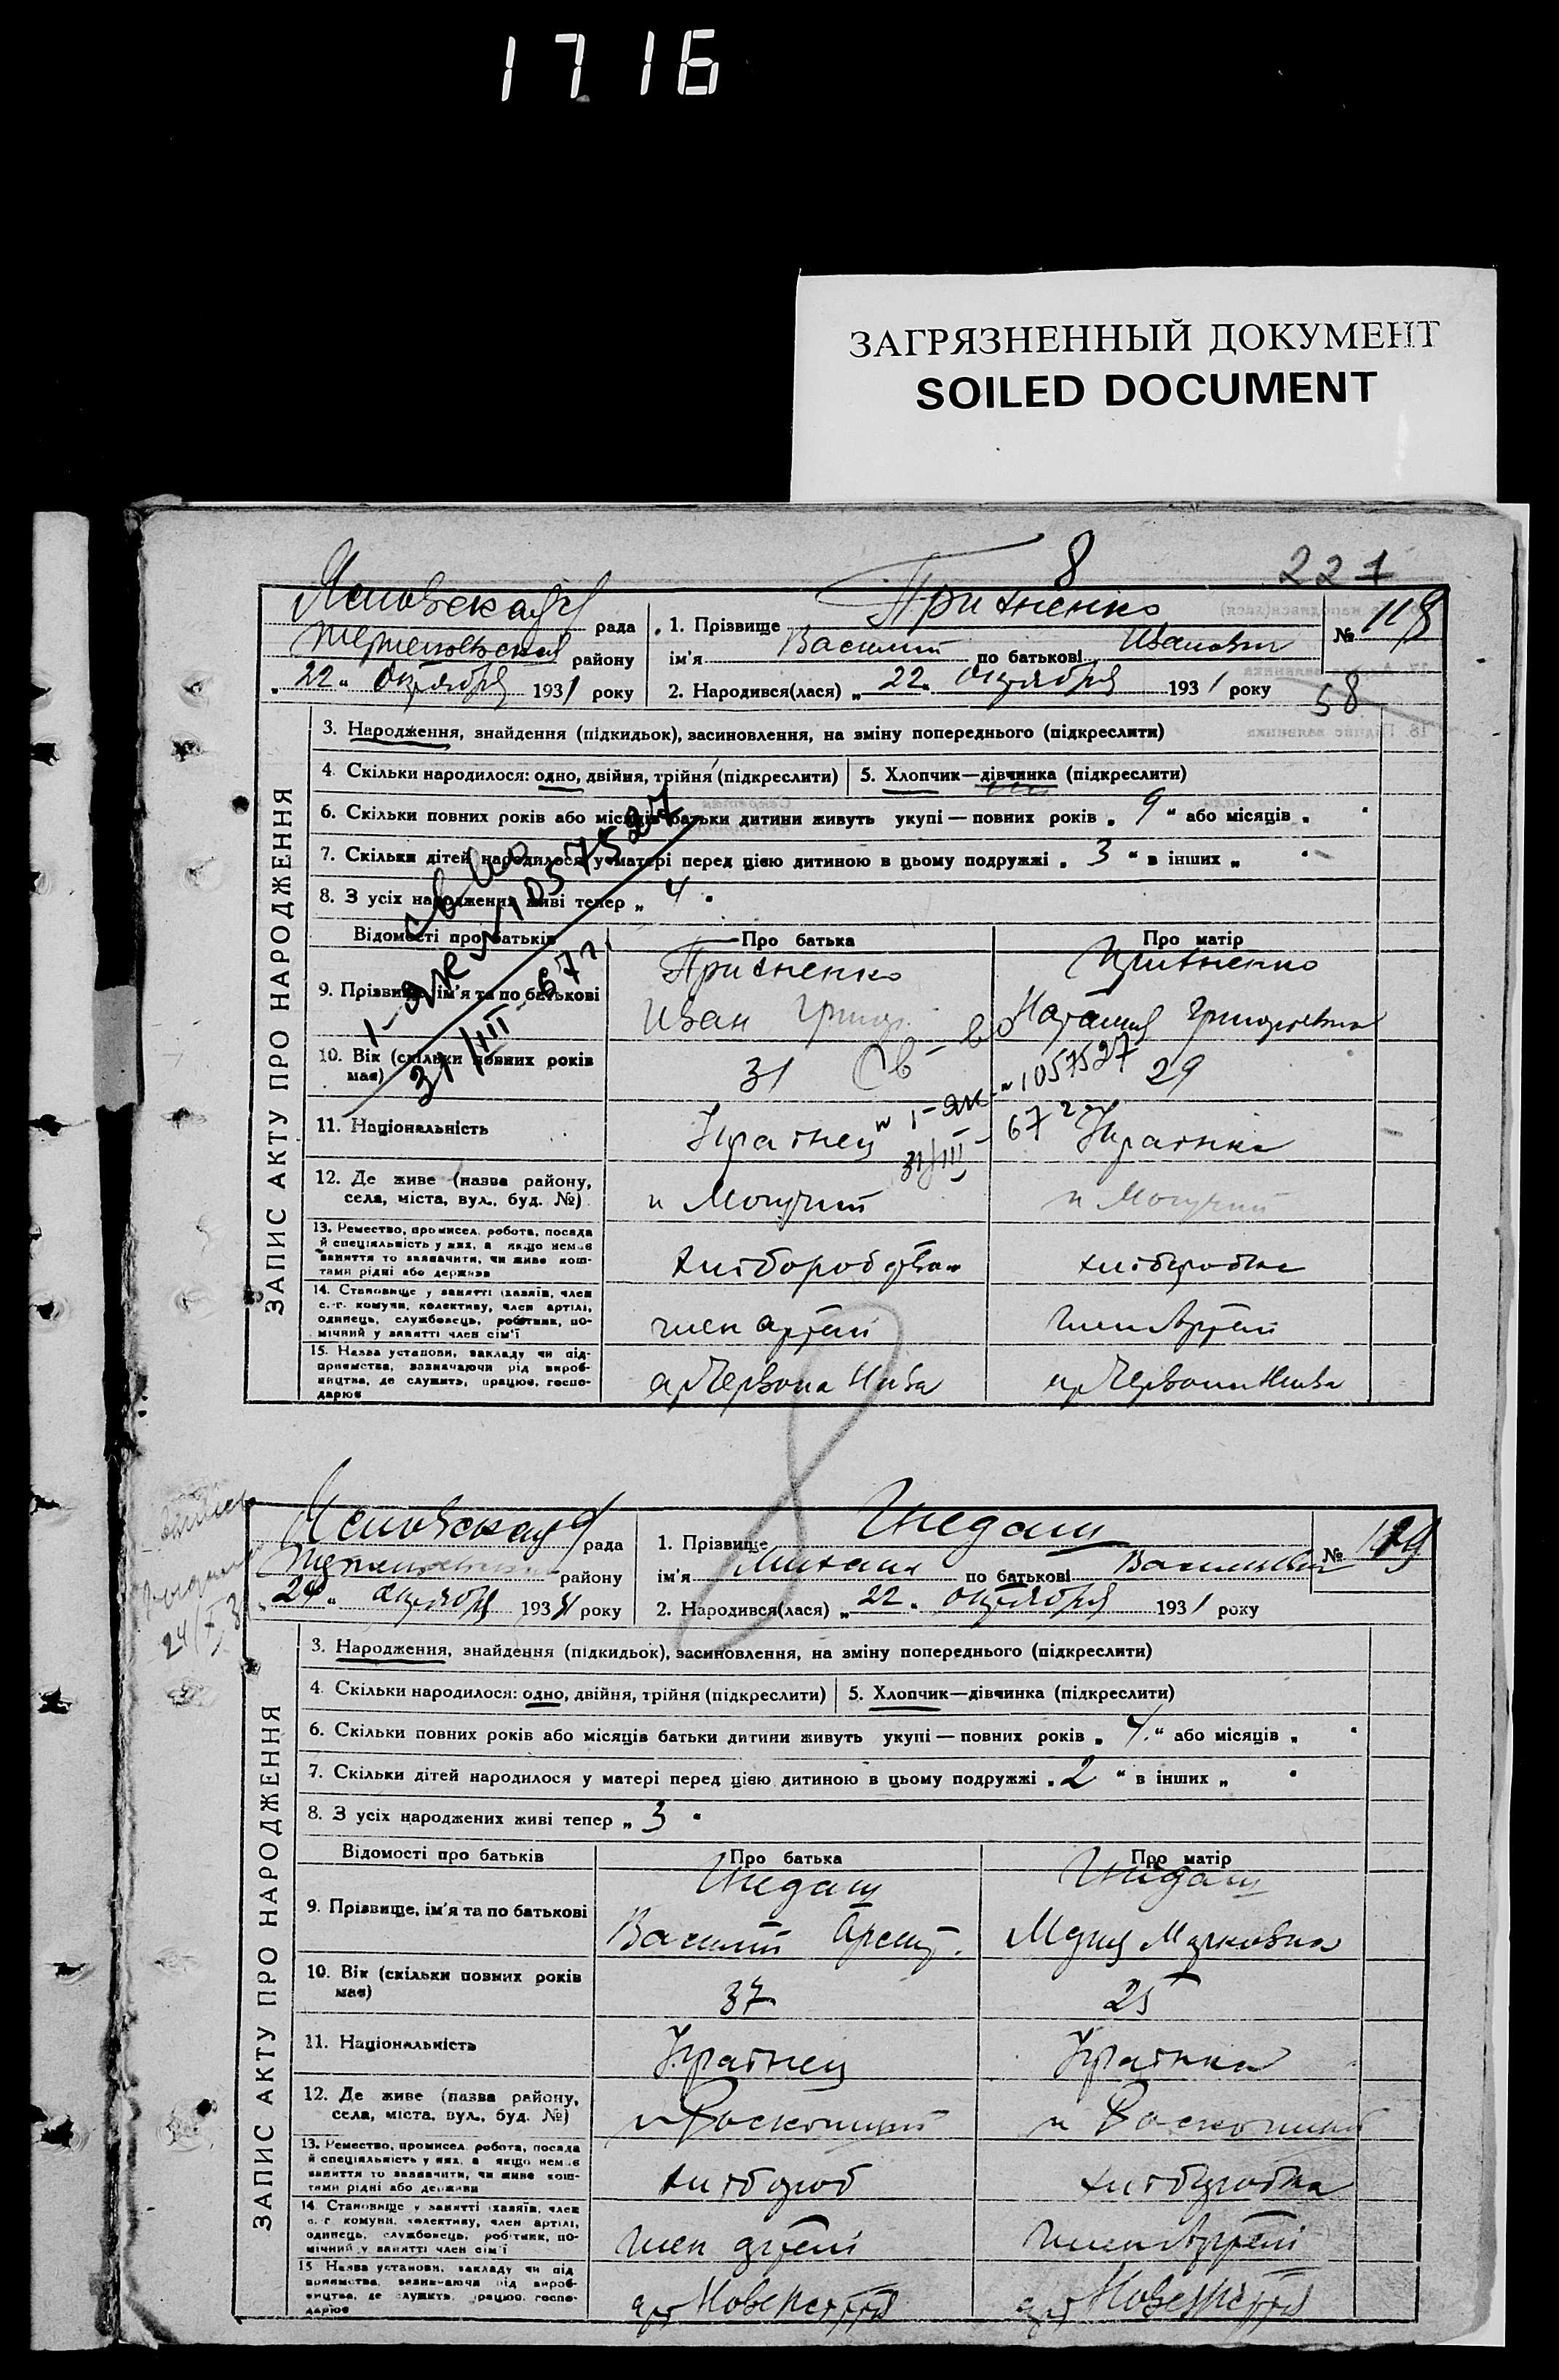 1716
ЗАГРЯЗНЕННЫЙ ДОКУМЕНТ
SOILED DOCUMENT
8
221
рада
району
„22“ октября 1931 року
1. Прізвище Притненко
№ 118
ім'я Василий по батькові Иванович
2. Народився(лася) „22“ октября 1931 року
58
ЗАПИС АКТУ ПРО НАРОДЖЕННЯ
3. Народження, знайдення (підкидьок), засиновлення, на зміну попереднього (підкреслити)
4. Скільки народилося: одно, двійня, трійня (підкреслити)
5. Хлопчик—дівчинка (підкреслити)
6. Скільки повних років або місяців батьки дитини живуть укупі — повних років „9“ або місяців „
7. Скільки дітей народилося у матері перед цією дитиною в цьому подружжі „3“ в інших „ –
8. З усіх народжених живі тепер „4“
Відомості про батьків
Про батька
Про матір
9. Прізвище, ім'я та по батькові
Притненко
Иван Григ.
Притненко
Наталия Григорьевна
10. Вік (скільки повних років має)
31
29
Св-во
I-ЯК № 1057527
31/III-67 г.
11. Національність
Украінец
Украінка
12. Де живе (назва району, села, міста, вул., буд. №)
п Могучий
п Могучий
13. Ремество, промисел, робота, посада й спеціяльність у них, а якщо немає заняття то зазначити, чи живе коштами рідні або держави
хлібороб
хліборобка
14. Становище у занятті (хазяїн, член с.-г. комуни, колективу, член артілі, одинець, службовець, робітник, помічний у занятті член сім'ї
член артели
член артели
15. Назва установи, закладу чи підприємства, зазначаючи рід виробництва, де служить, працює, господарює
ар Червона Нива
ар Червона Нива
8
24/X 31
рада
району
„24“ октября 1931 року
1. Прізвище
№ 119
ім'я Михаил по батькові Васильевич
2. Народився(лася) „22“ октября 1931 року
ЗАПИС АКТУ ПРО НАРОДЖЕННЯ
3. Народження, знайдення (підкидьок), засиновлення, на зміну попереднього (підкреслити)
4. Скільки народилося: одно, двійня, трійня (підкреслити)
5. Хлопчик—дівчинка (підкреслити)
6. Скільки повних років або місяців батьки дитини живуть укупі — повних років „4“ або місяців „
7. Скільки дітей народилося у матері перед цією дитиною в цьому подружжі „2“ в інших „
8. З усіх народжених живі тепер „3“
Відомості про батьків
Про батька
Про матір
9. Прізвище, ім'я та по батькові
Василий
Марковна
10. Вік (скільки повних років має)
37
25
11. Національність
Украінец
Украінка
12. Де живе (назва району, села, міста, вул., буд. №)
13. Ремество, промисел, робота, посада й спеціяльність у них, а якщо немає заняття то зазначити, чи живе коштами рідні або держави
хлібороб
хліборобка
14. Становище у занятті (хазяїн, член с.-г. комуни, колективу, член артілі, одинець, службовець, робітник, помічний у занятті член сім'ї
член артели
член артели
15. Назва установи, закладу чи підприємства, зазначаючи рід виробництва, де служить, працює, господарює